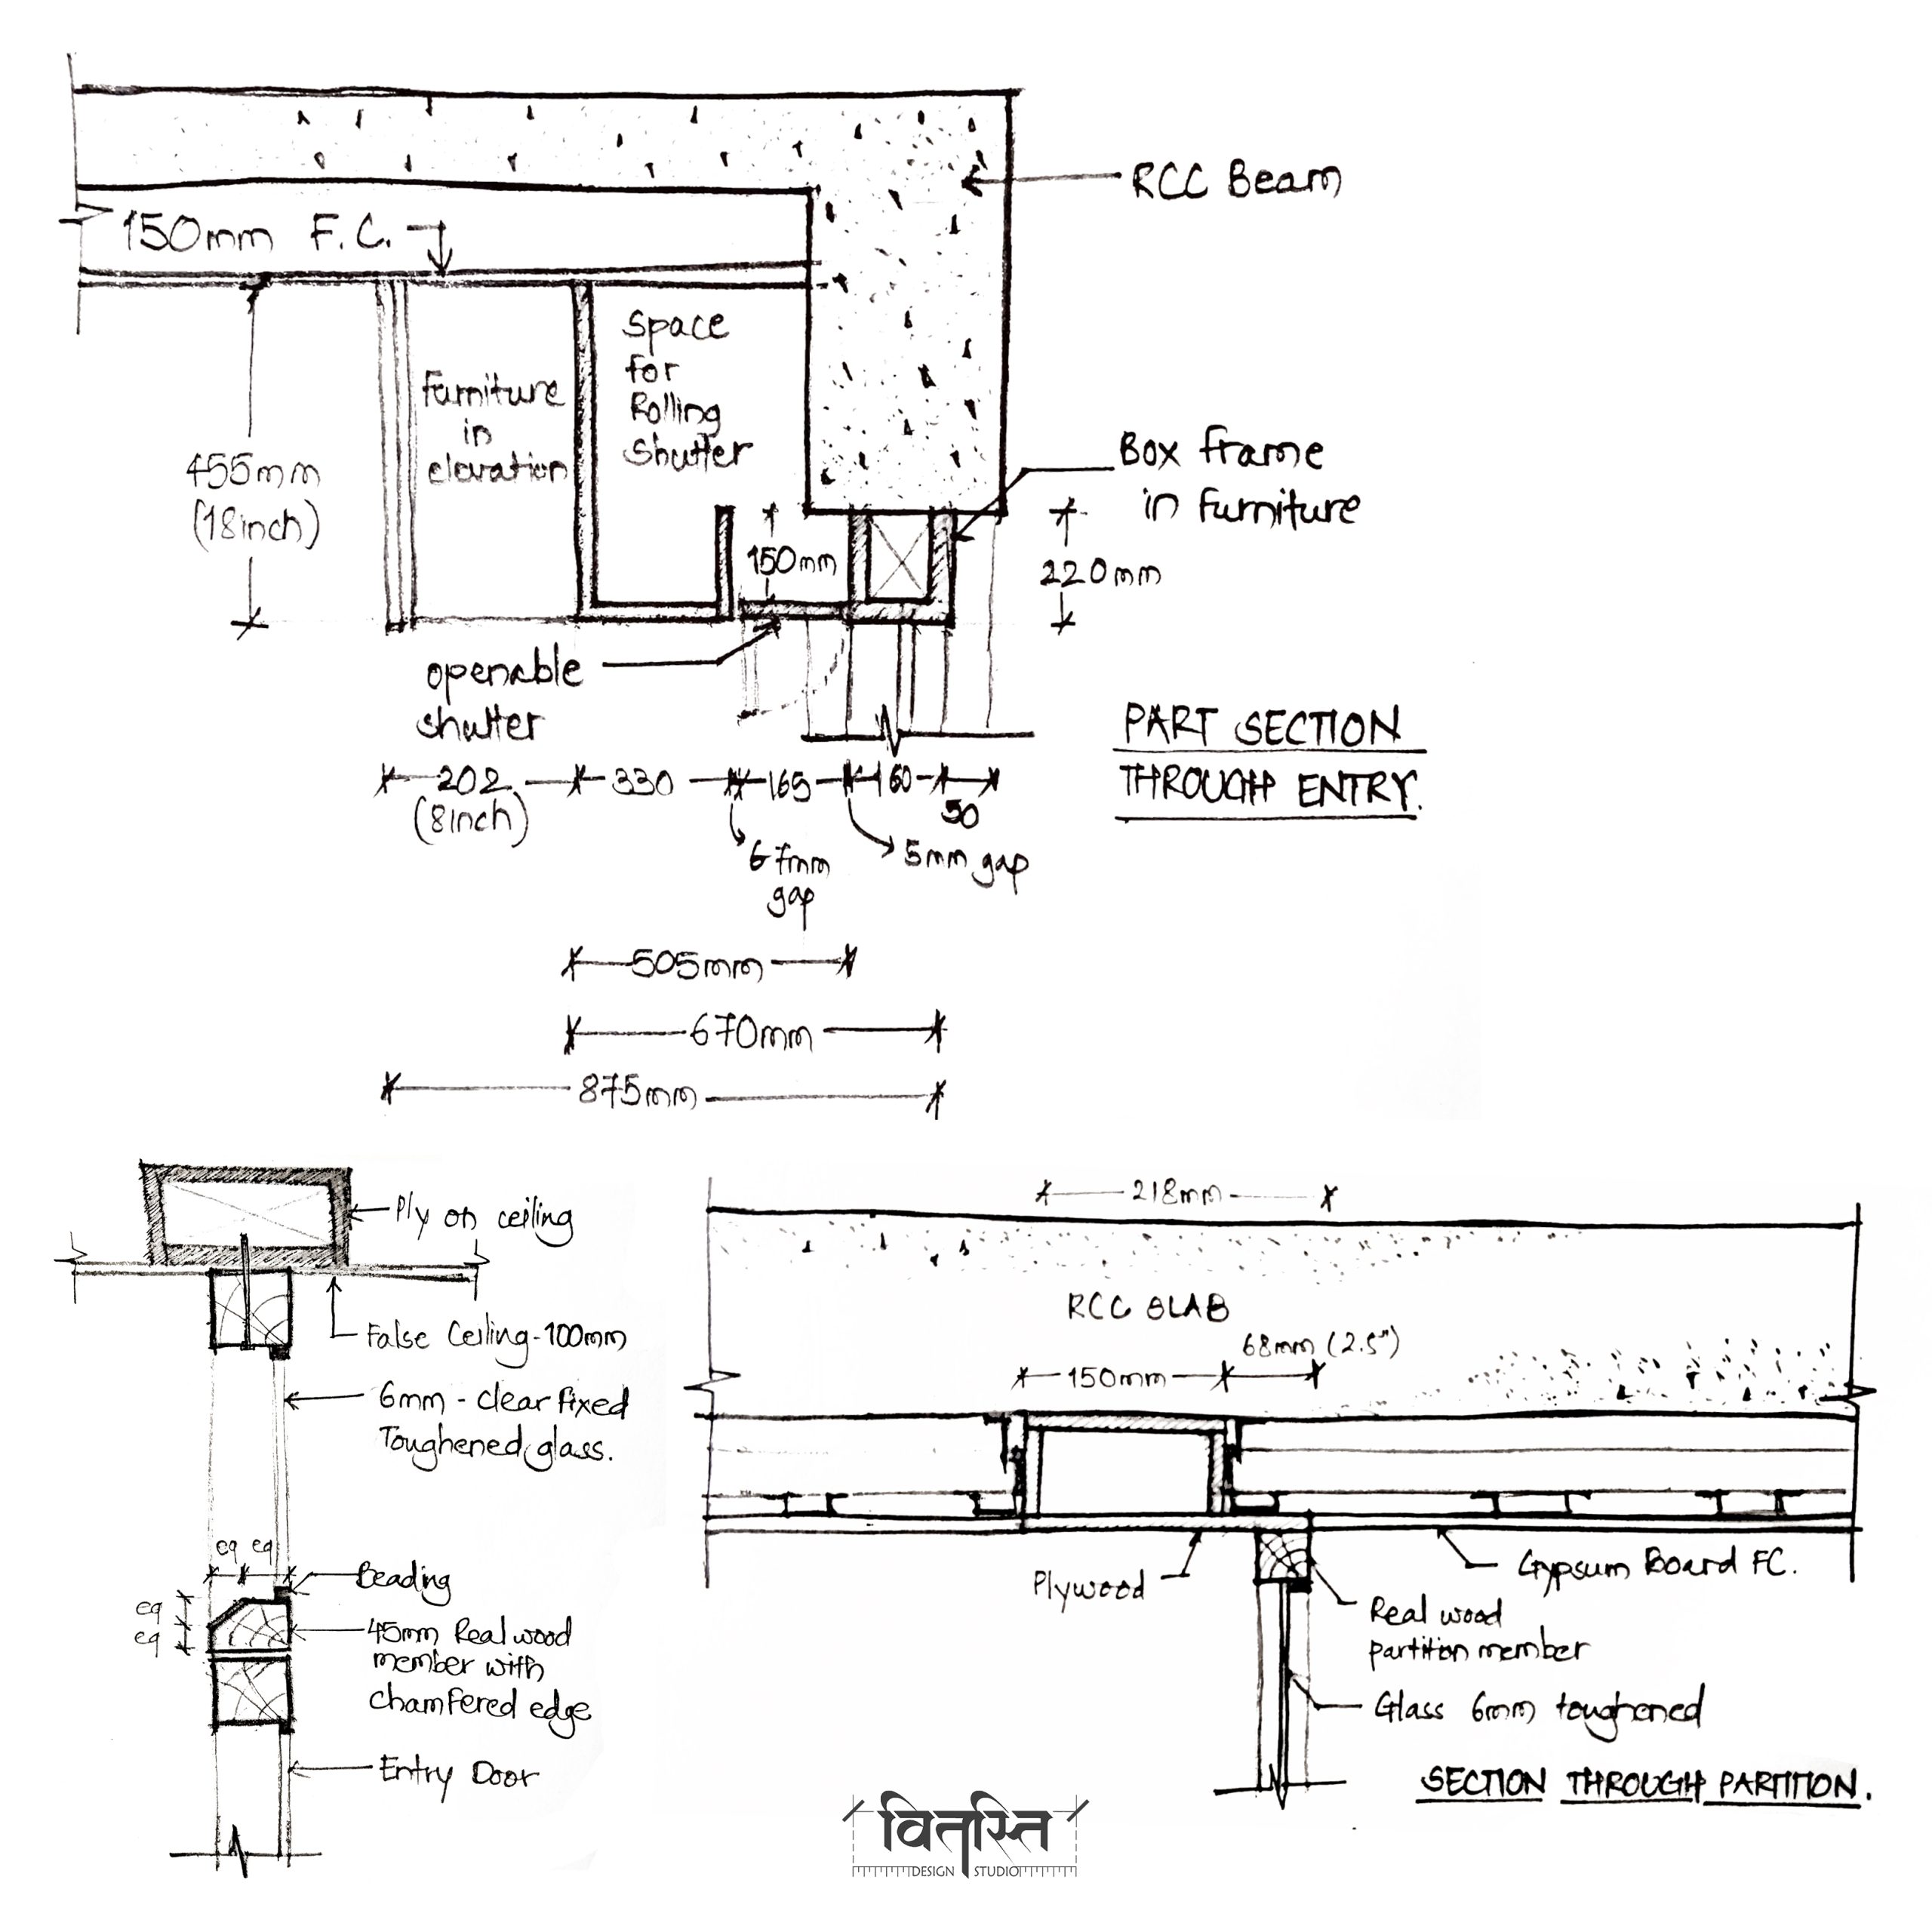 RCC Beam
150mm F.C.
Space
for
Rolling
Shutter
Furniture
in
elevation
455mm
(18inch)
Box frame
in Furniture
150mm
220mm
openable
shutter
PART SECTION
THROUGH ENTRY.
202 330 165 160
(8inch)
50
5mm gap
gap
505mm
670mm
875mm
Ply on ceiling
False Ceiling-100mm
6mm - clear fixed
Toughened glass.
eq eq
Beading
eq
eq
45mm Real wood
member with
chamfered edge
Entry Door
218mm
RCC SLAB
68mm (2.5")
150mm
Plywood
Gypsum Board FC.
Real wood
partition member
Glass 6mm toughened
SECTION THROUGH PARTITION.
वितस्ति
DESIGN STUDIO